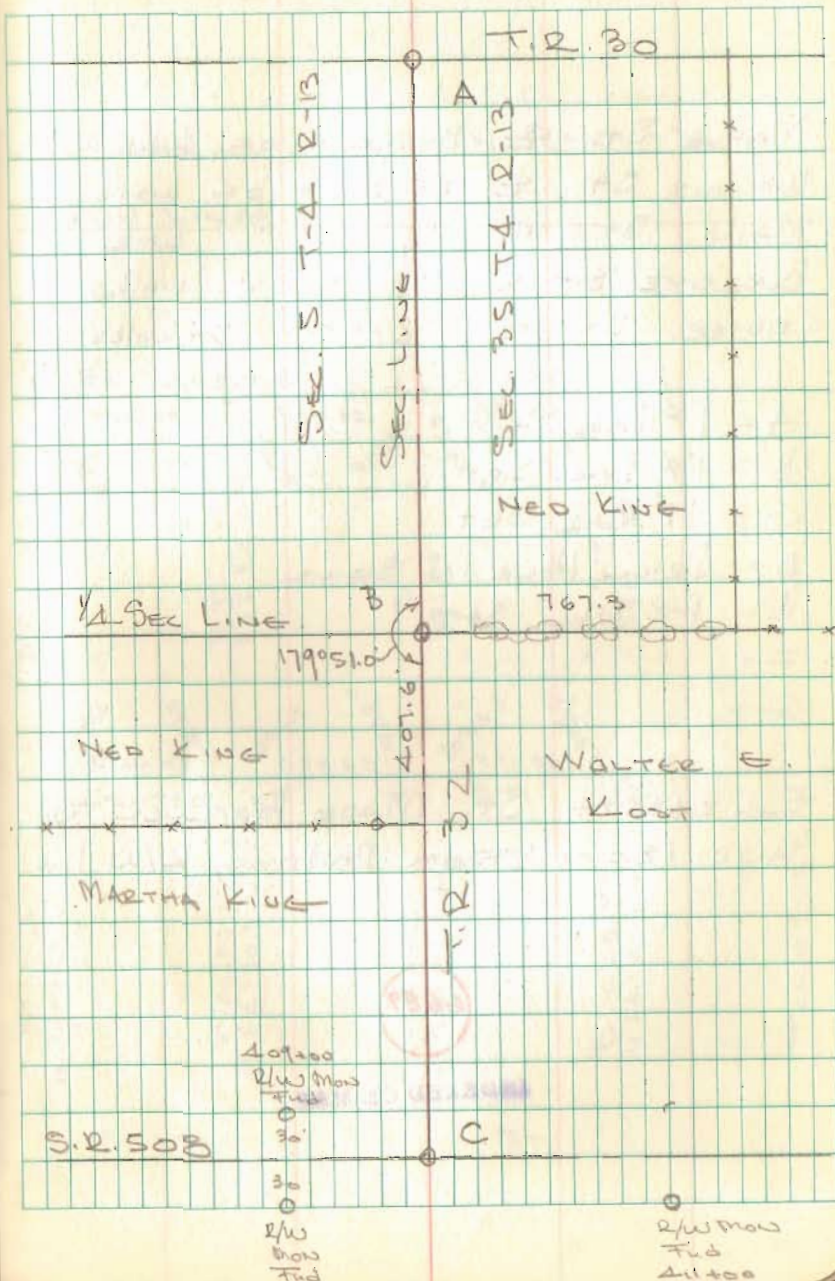 T.R. 30
A
SEC. 5 T-4 R-13
SEC. LINE
SEC. 35 T-4 R-13
NED KING
1/4 SEC LINE
B
767.3
179°51.0'
407.6'
NED KING
WALTER E.
KOST
T.R. 32
MARTHA KING
409+00
R/W MON
Fnd
30'
S.R. 508
C
30
R/W
MON
Fnd
R/W MON
Fnd
411+00